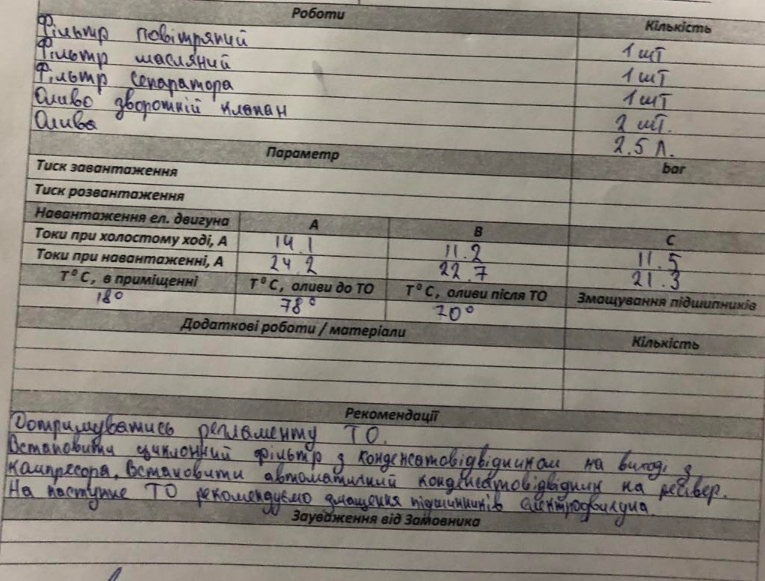 Роботи Кількість
Фільтр повітряний 1 шт
Фільтр масляний 1 шт
Фільтр сепаратора 1 шт
Оливо зворотній клапан 2 шт.
Олива 2.5 л.
Параметр bar
Тиск завантаження
Тиск розвантаження
Навантаження ел. двигуна А В С
Токи при холостому ході, А 14.1 11.2 11.5
Токи при навантаженні, А 24.2 22.7 21.3
Т°С, в приміщенні Т°С, оливи до ТО Т°С, оливи після ТО Змащування підшипників
18° 78° 70°
Додаткові роботи / матеріали Кількість
Рекомендації
Дотримуватись регламенту ТО.
Встановити циклонний фільтр з конденсатовідвідником на виході з
компресора. Встановити автоматичний конденсатовідвідник на ресівер.
На наступне ТО рекомендуємо змащення підшипників електродвигуна.
Зауваження від Замовника